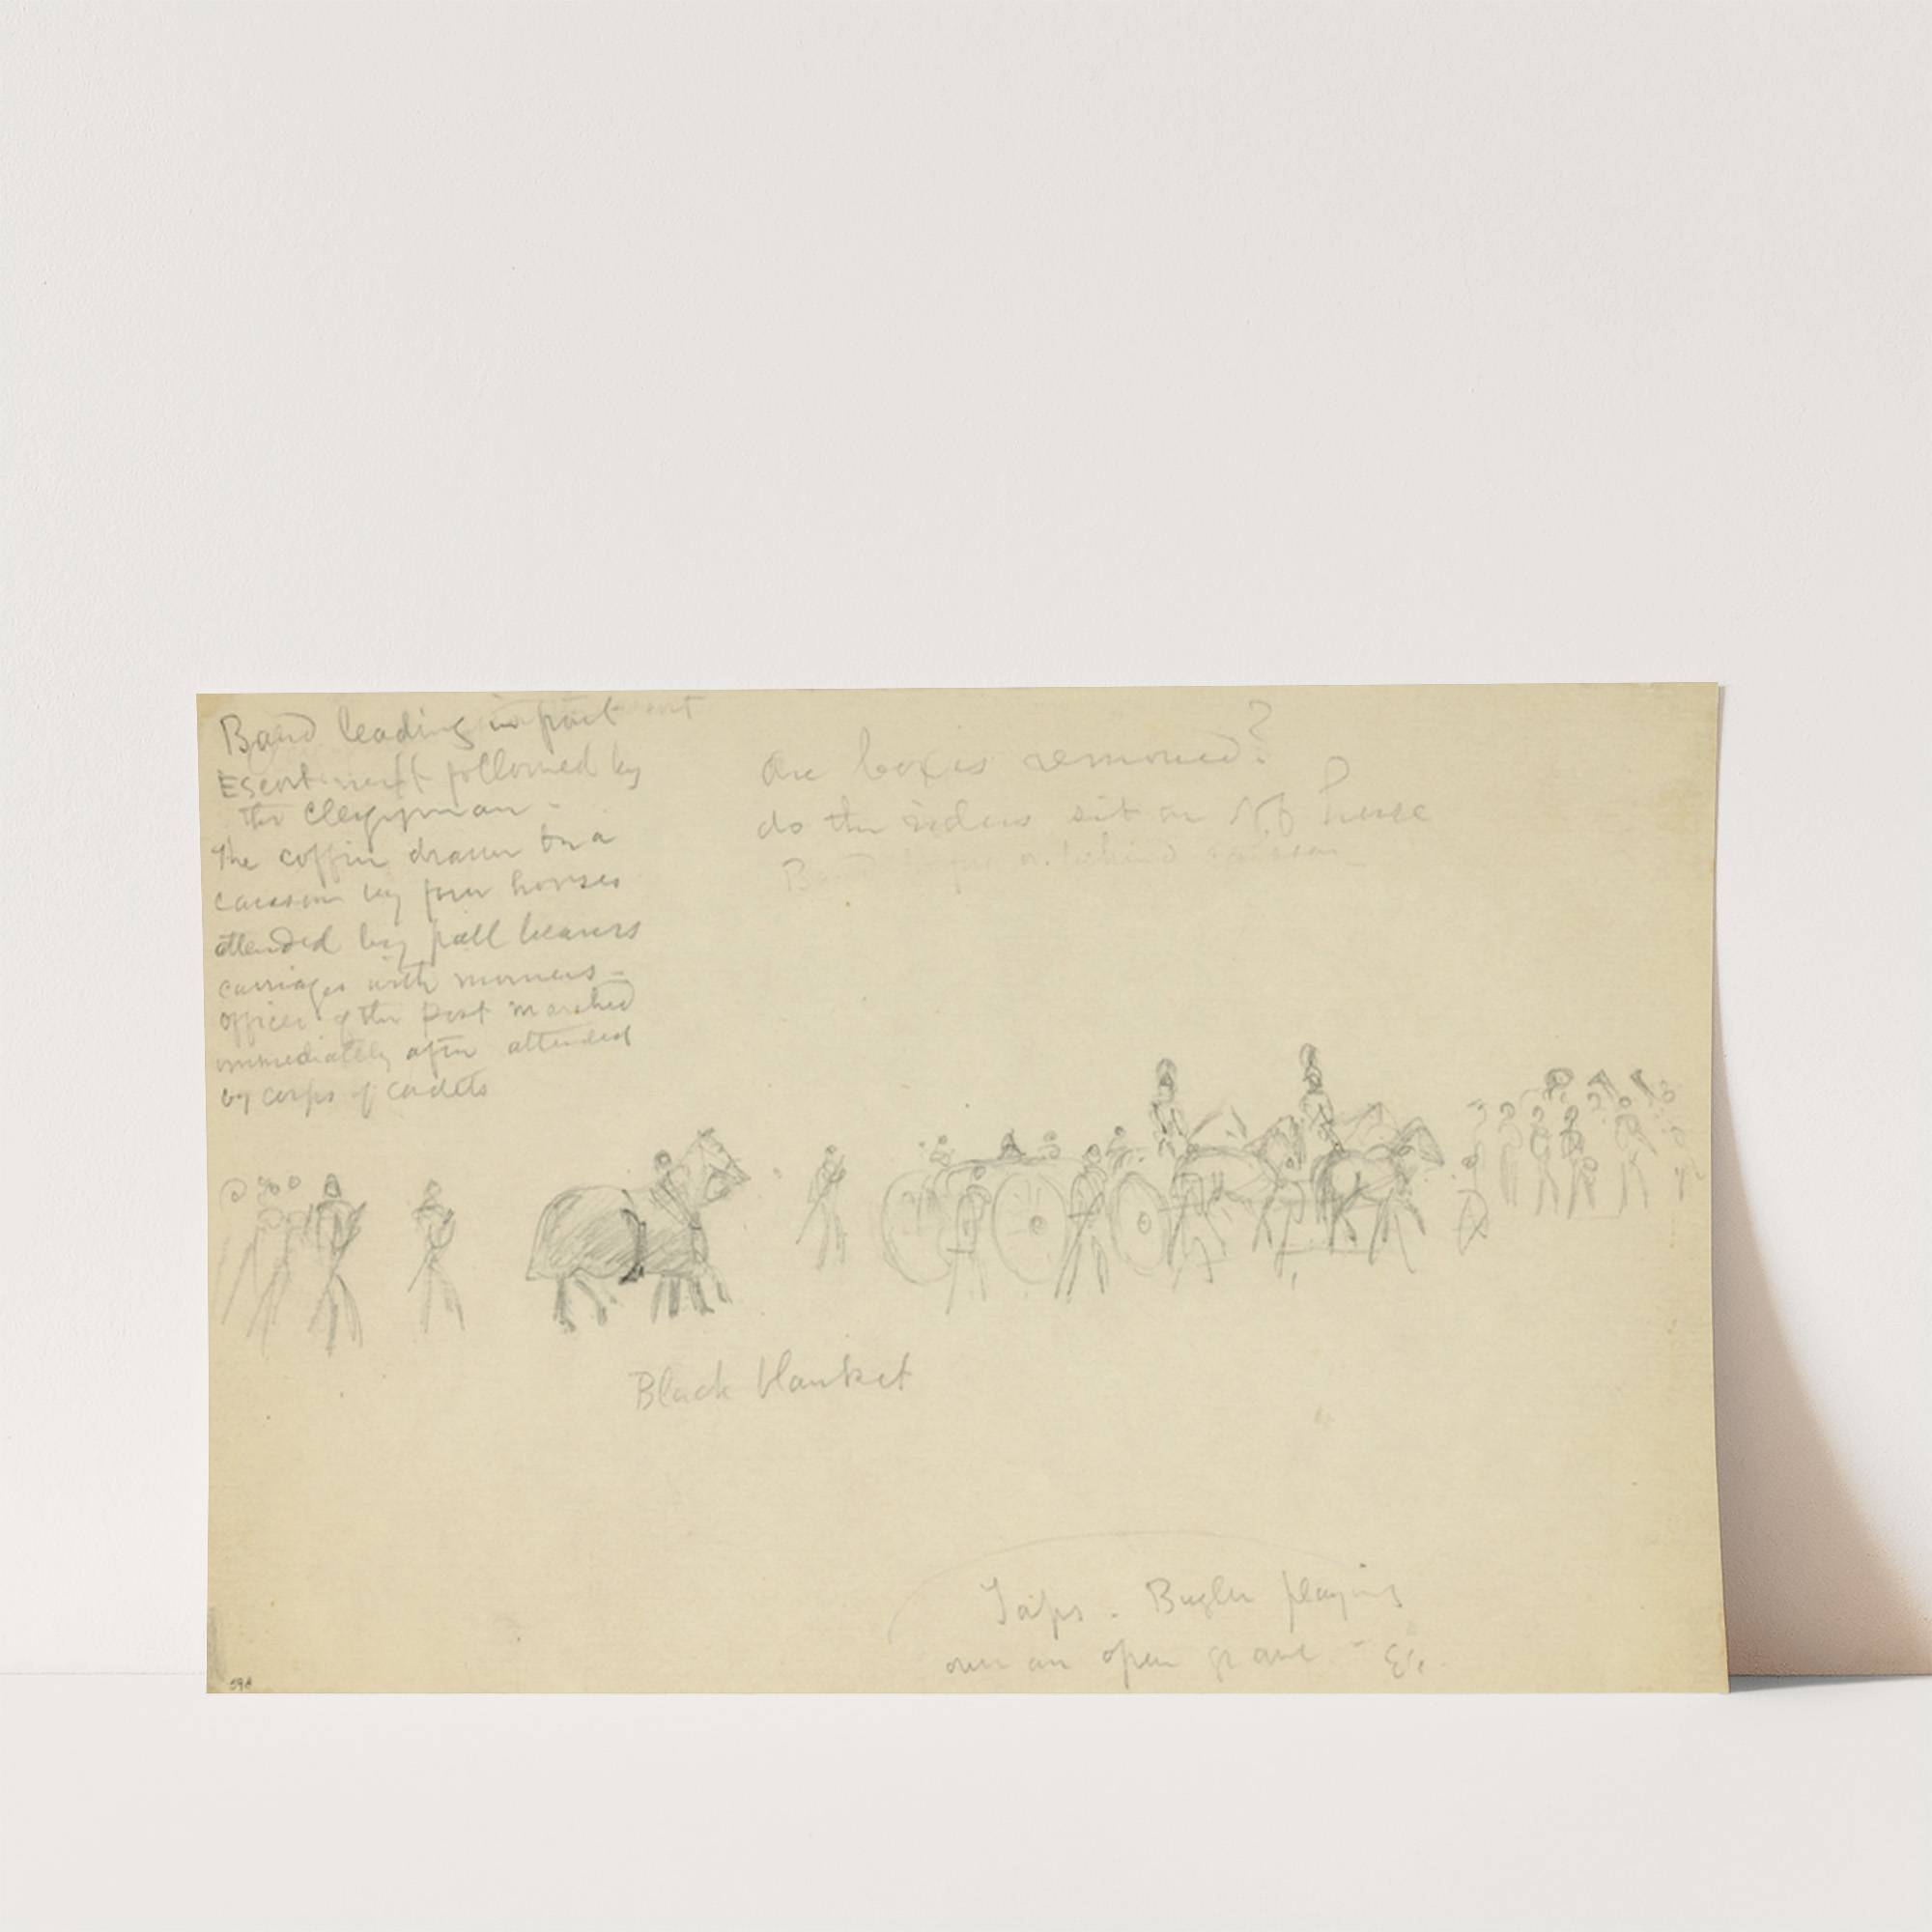 Band leading in front
Escort itself followed by
the Clergyman -
The coffin drawn on a
caisson by four horses
attended by pall bearers
carriages with mourners -
officers of the post marched
immediately after attended
by corps of cadets
are boxes removed?
do the riders sit on horse
Band or behind caisson
Black blanket
Taps. Bugler playing
over an open grave - &c.